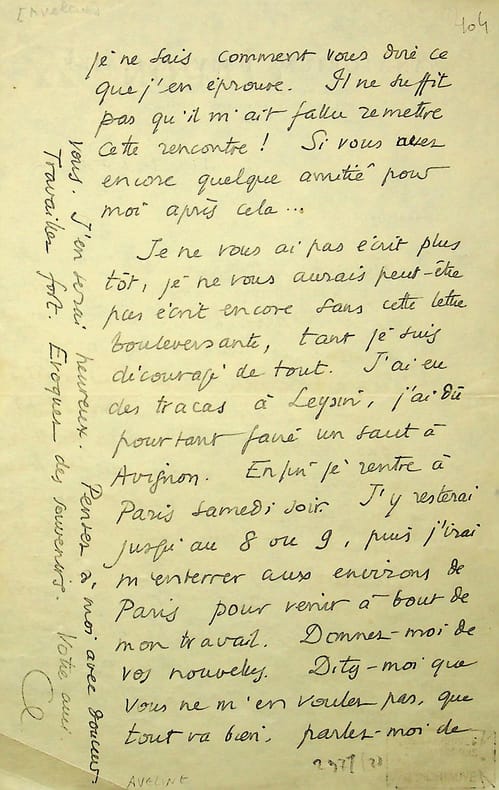 [Aveline]
404
je ne sais comment vous dire ce
que j'en éprouve. Il ne suffit
pas qu'il m'ait fallu remettre
cette rencontre ! Si vous avez
encore quelque amitié pour
moi après cela...
Je ne vous ai pas écrit plus
tôt, je ne vous aurais peut-être
pas écrit encore sans cette lettre
bouleversante, tant je suis
découragé de tout. J'ai eu
des tracas à Leysin, j'ai dû
pourtant faire un saut à
Avignon. Enfin je rentre à
Paris samedi soir. J'y resterai
jusqu'au 8 ou 9, puis j'irai
m'enterrer aux environs de
Paris pour venir à bout de
mon travail. Donnez-moi de
vos nouvelles. Dites-moi que
vous ne m'en voulez pas, que
tout va bien, parlez-moi de
vous. J'en serai heureux. Pensez à moi avec douceur.
Travaillez fort. Evoquez des souvenirs. Votre ami.
AVELINE